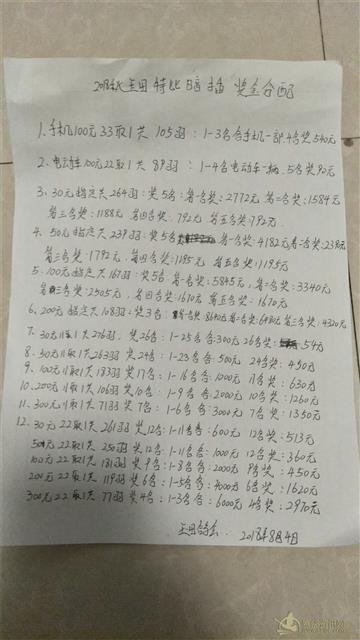 2018秋 玉田 特比 暗插 奖金分配
1. 手机100元 33取1 共 105羽 : 1-3名各手机一部. 4名奖540元
2. 电动车100元 22取1 共 89羽 : 1-4名电动车一辆. 5名奖90元
3. 30元指定共264羽: 奖5名: 第一名奖: 2772元. 第二名奖: 1584元
第三名奖: 1188元. 第四名奖: 792元 第五名奖: 792元.
4. 50元指定共239羽: 奖5名 第一名奖: 4182元 第二名奖: 2390元
第三名奖: 1792元. 第四名奖: 1195元 第五名奖: 1195元
5. 100元指定共167羽: 奖5名 第一名奖: 5845元. 第二名奖: 3340元
第三名奖: 2505元. 第四名奖: 1670元 第五名奖: 1670元
6. 200元指定共108羽: 奖3名: 第一名奖 8640元 第二名奖: 6480元 第三名奖: 4320元
7. 30元11取1共276羽. 奖26名: 1-25名各: 300元 26名奖: 54元
8. 50元11取1共263羽 奖24名: 1-23名各: 500元 24名奖: 450元
9. 100元11取1共183羽 奖17名: 1-16名各: 1000元 17名奖: 630元
10. 200元11取1共106羽 奖10名: 1-9名各: 2000元 10名奖: 1260元
11. 300元11取1共71羽 奖7名: 1-6名各: 3000元 7名奖: 1350元
12. 30元 22取1共 261羽 奖12名: 1-11名各: 600元 12名奖: 513元
50元 22取1共 250羽 奖12名: 1-11名各: 1000元 12名奖: 360元
100元 22取1共 181羽 奖9名: 1-8名各: 2000元 9名奖: 450元
200元 22取1共 119羽 奖6名: 1-5名各: 4000元 6名奖: 1620元
300元 22取1共 77羽 奖4名: 1-3名各: 6000元 4名奖: 2970元
玉田鸽会 2018年8月4日